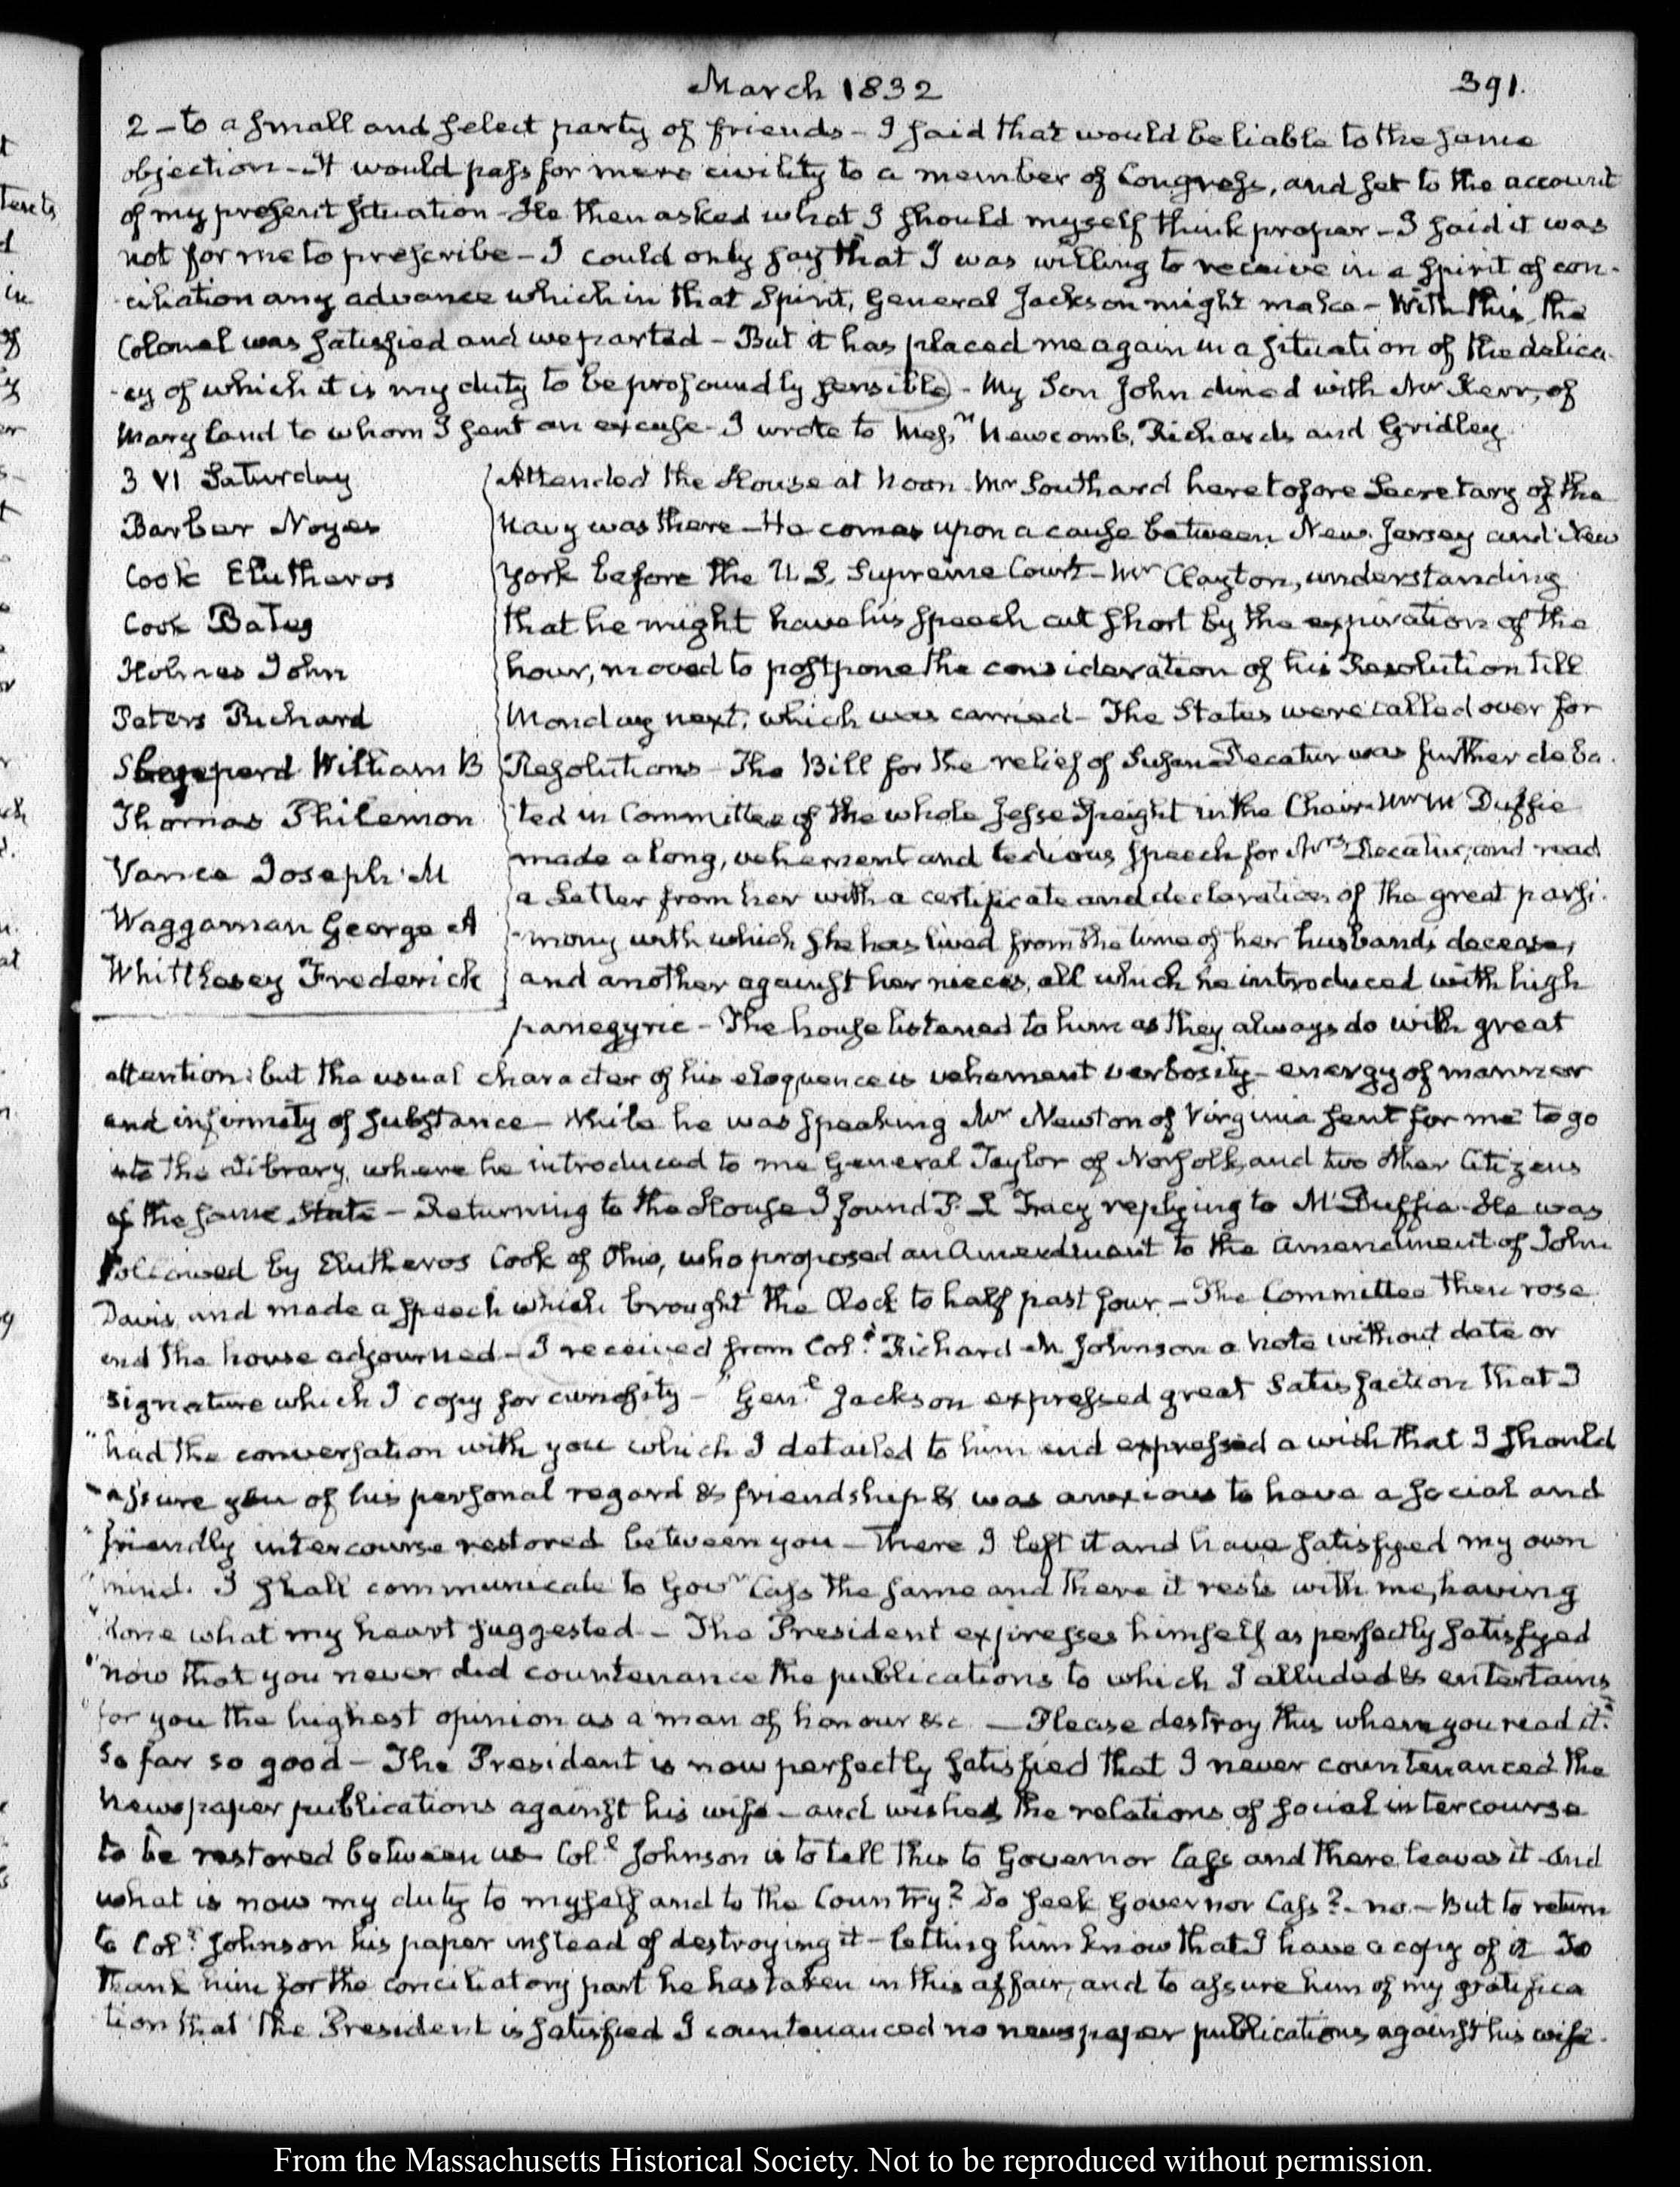 March 1832
391.
2 - to a small and select party of friends - I said that would be liable to the same
objection - It would pass for mere civility to a member of Congress, and set to the account
of my present situation - He then asked what I should myself think proper - I said it was
not for me to prescribe - I could only say that I was willing to receive in a spirit of con-
ciliation any advance which in that spirit, General Jackson might make - With this, the
Colonel was satisfied and we parted - But it has placed me again in a situation of the delica-
-cy of which it is my duty to be profoundly sensible - My Son John dined with Mr Kerr, of
Maryland to whom I sent an excuse - I wrote to Messrs Newcomb, Richards and Gridley
3 VI Saturday
Barber Noyes
Cook Elutheros
Cook Bates
Holmes John
Peters Richard
Shepperd William B
Thomas Philemon
Vance Joseph M
Waggaman George A
Whittlesey Frederick
Attended the House at Noon Mr Southard heretofore Secretary of the
Navy was there - He comes upon a cause between New Jersey and New
York before the U.S. Supreme Court - Mr Clayton, understanding
that he might have his speech cut short by the expiration of the
hour, moved to postpone the consideration of his Resolution till
Monday next, which was carried - The States were called over for
Resolutions - The Bill for the relief of Susan Decatur was further deba-
ted in Committee of the whole Jesse Speight in the Chair. Mr Mc Duffie
made a long, vehement and tedious speech for Mrs Decatur, and read
a Letter from her with a certificate and declaration of the great parsi-
-mony with which she has lived from the time of her husband's decease,
and another against her nieces, all which he introduced with high
panegyric - The house listened to him as they always do with great
attention: but the usual character of his eloquence is vehement verbosity - energy of manner
and infirmity of substance - While he was speaking Mr Newton of Virginia sent for me to go
into the Library, where he introduced to me General Taylor of Norfolk, and two other Citizens
of the same State - Returning to the House I found P. L Tracy replying to McDuffie - He was
followed by Elutheros Cook of Ohio, who proposed an Amendment to the Amendment of John
Davis, and made a speech which brought the Clock to half past four - The Committee then rose
and the house adjourned - I received from Coll Richard M Johnson a note without date or
signature which I copy for curiosity - "Genl Jackson expressed great satisfaction that I
"had the conversation with you which I detailed to him and expressed a wish that I should
"assure you of his personal regard & friendship & was anxious to have a social and
"friendly intercourse restored between you - There I left it and have satisfyed my own
"mind. I shall communicate to Govr Cass the same and there it rests with me, having
"done what my heart suggested - The President expresses himself as perfectly satisfyed
"now that you never did countenance the publications to which I alluded & entertains
"for you the highest opinion as a man of honour &c - Please destroy this when you read it."
So far so good - The President is now perfectly satisfied that I never countenanced the
newspaper publications against his wife - and wishes the relations of social intercourse
to be restored between us Coll Johnson is to tell this to Governor Cass and there leaves it - And
what is now my duty to myself and to the Country? To seek Governor Cass? - no. - But to return
to Coll Johnson his paper instead of destroying it - letting him know that I have a copy of it To
thank him for the conciliatory part he has taken in this affair, and to assure him of my gratifica
tion that the President is satisfied I countenanced no newspaper publications against his wife.
From the Massachusetts Historical Society. Not to be reproduced without permission.